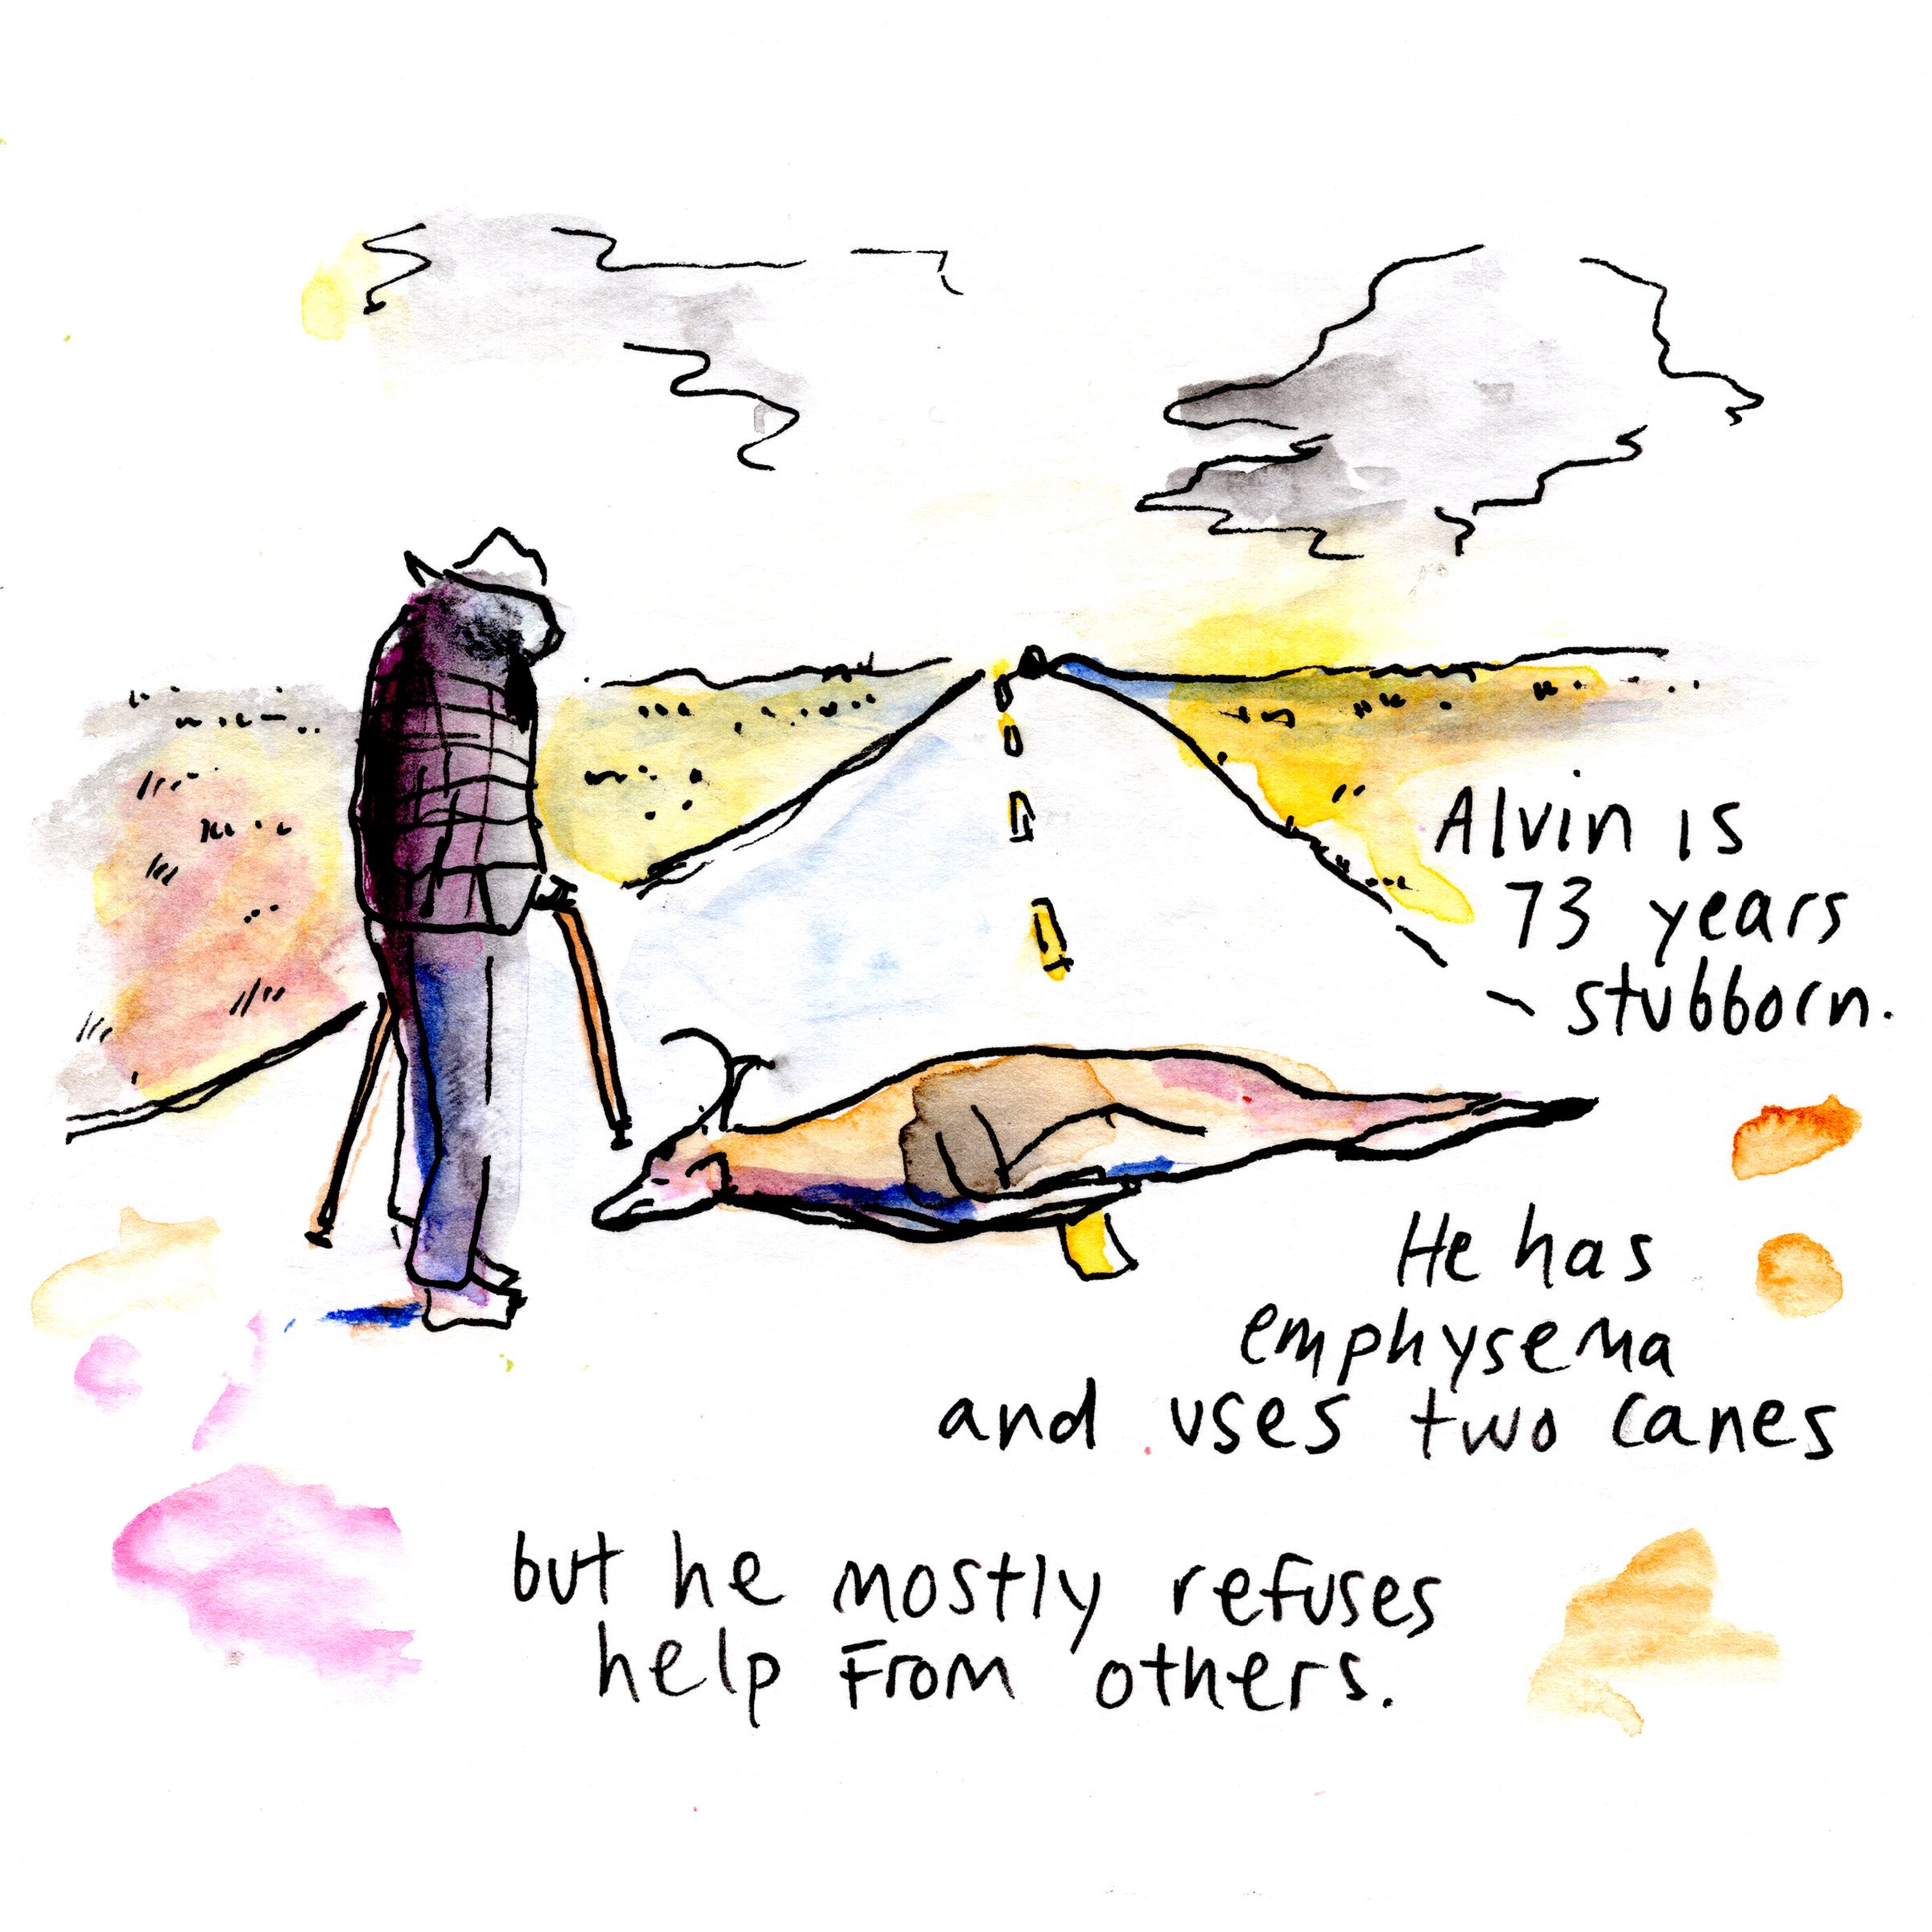 Alvin is
73 years
stubborn.
He has
emphysema
and uses two canes
but he mostly refuses
help from others.